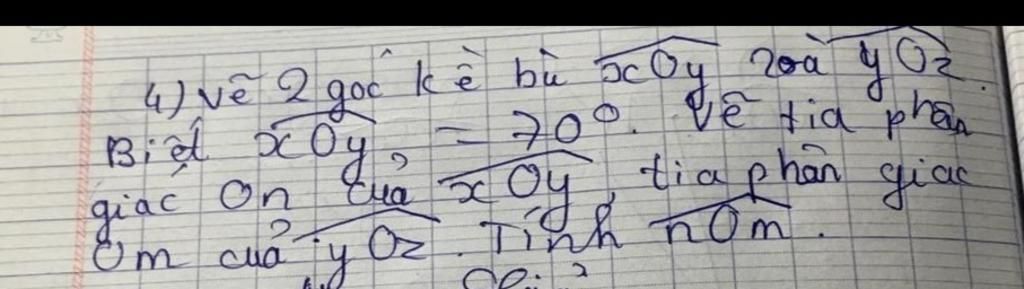 4) Vẽ 2 góc kề bù xOy và yOz.
Biết xOy = 70°. Vẽ tia phân
giác On của xOy, tia phân giác
Om của yOz. Tính nOm.